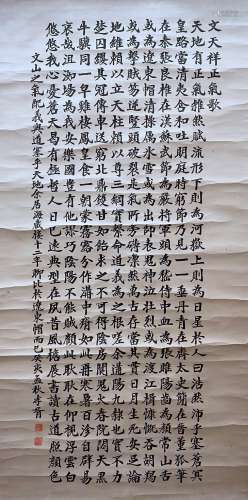 文天祥正氣歌
天地有正氣雜然賦流形下則為河嶽上則為日星於人曰浩然沛乎塞蒼冥
皇路當清夷含和吐明庭時窮節乃見一一垂丹青在齊太史簡在晉董狐筆
在秦張良椎在漢蘇武節為嚴將軍頭為嵇侍中血為張睢陽齒為顏常山舌
或為遼東帽清操厲冰雪或為出師表鬼神泣壯烈或為渡江楫慷慨吞胡羯
或為擊賊笏逆豎頭破裂是氣所磅礴凜然萬古存當其貫日月生死安足論
地維賴以立天柱賴以尊三綱實繫命道義為之根嗟余遘陽九隸也實不力
楚囚纓其冠傳車送窮北鼎鑊甘如飴求之不可得陰房闃鬼火春院閟天黑
牛驥同一皁雞棲鳳皇食一朝蒙霧露分作溝中瘠如此再寒暑百沴自辟易
哀哉沮洳場為我安樂國豈有他謬巧陰陽不能賊顧此耿耿在仰視浮雲白
悠悠我心憂蒼天曷有極哲人日已遠典型在夙昔風簷展書讀古道照顏色
文山之氣配義與道塞乎天地今居海十二年聊比於遼東帽而已癸亥孟秋李